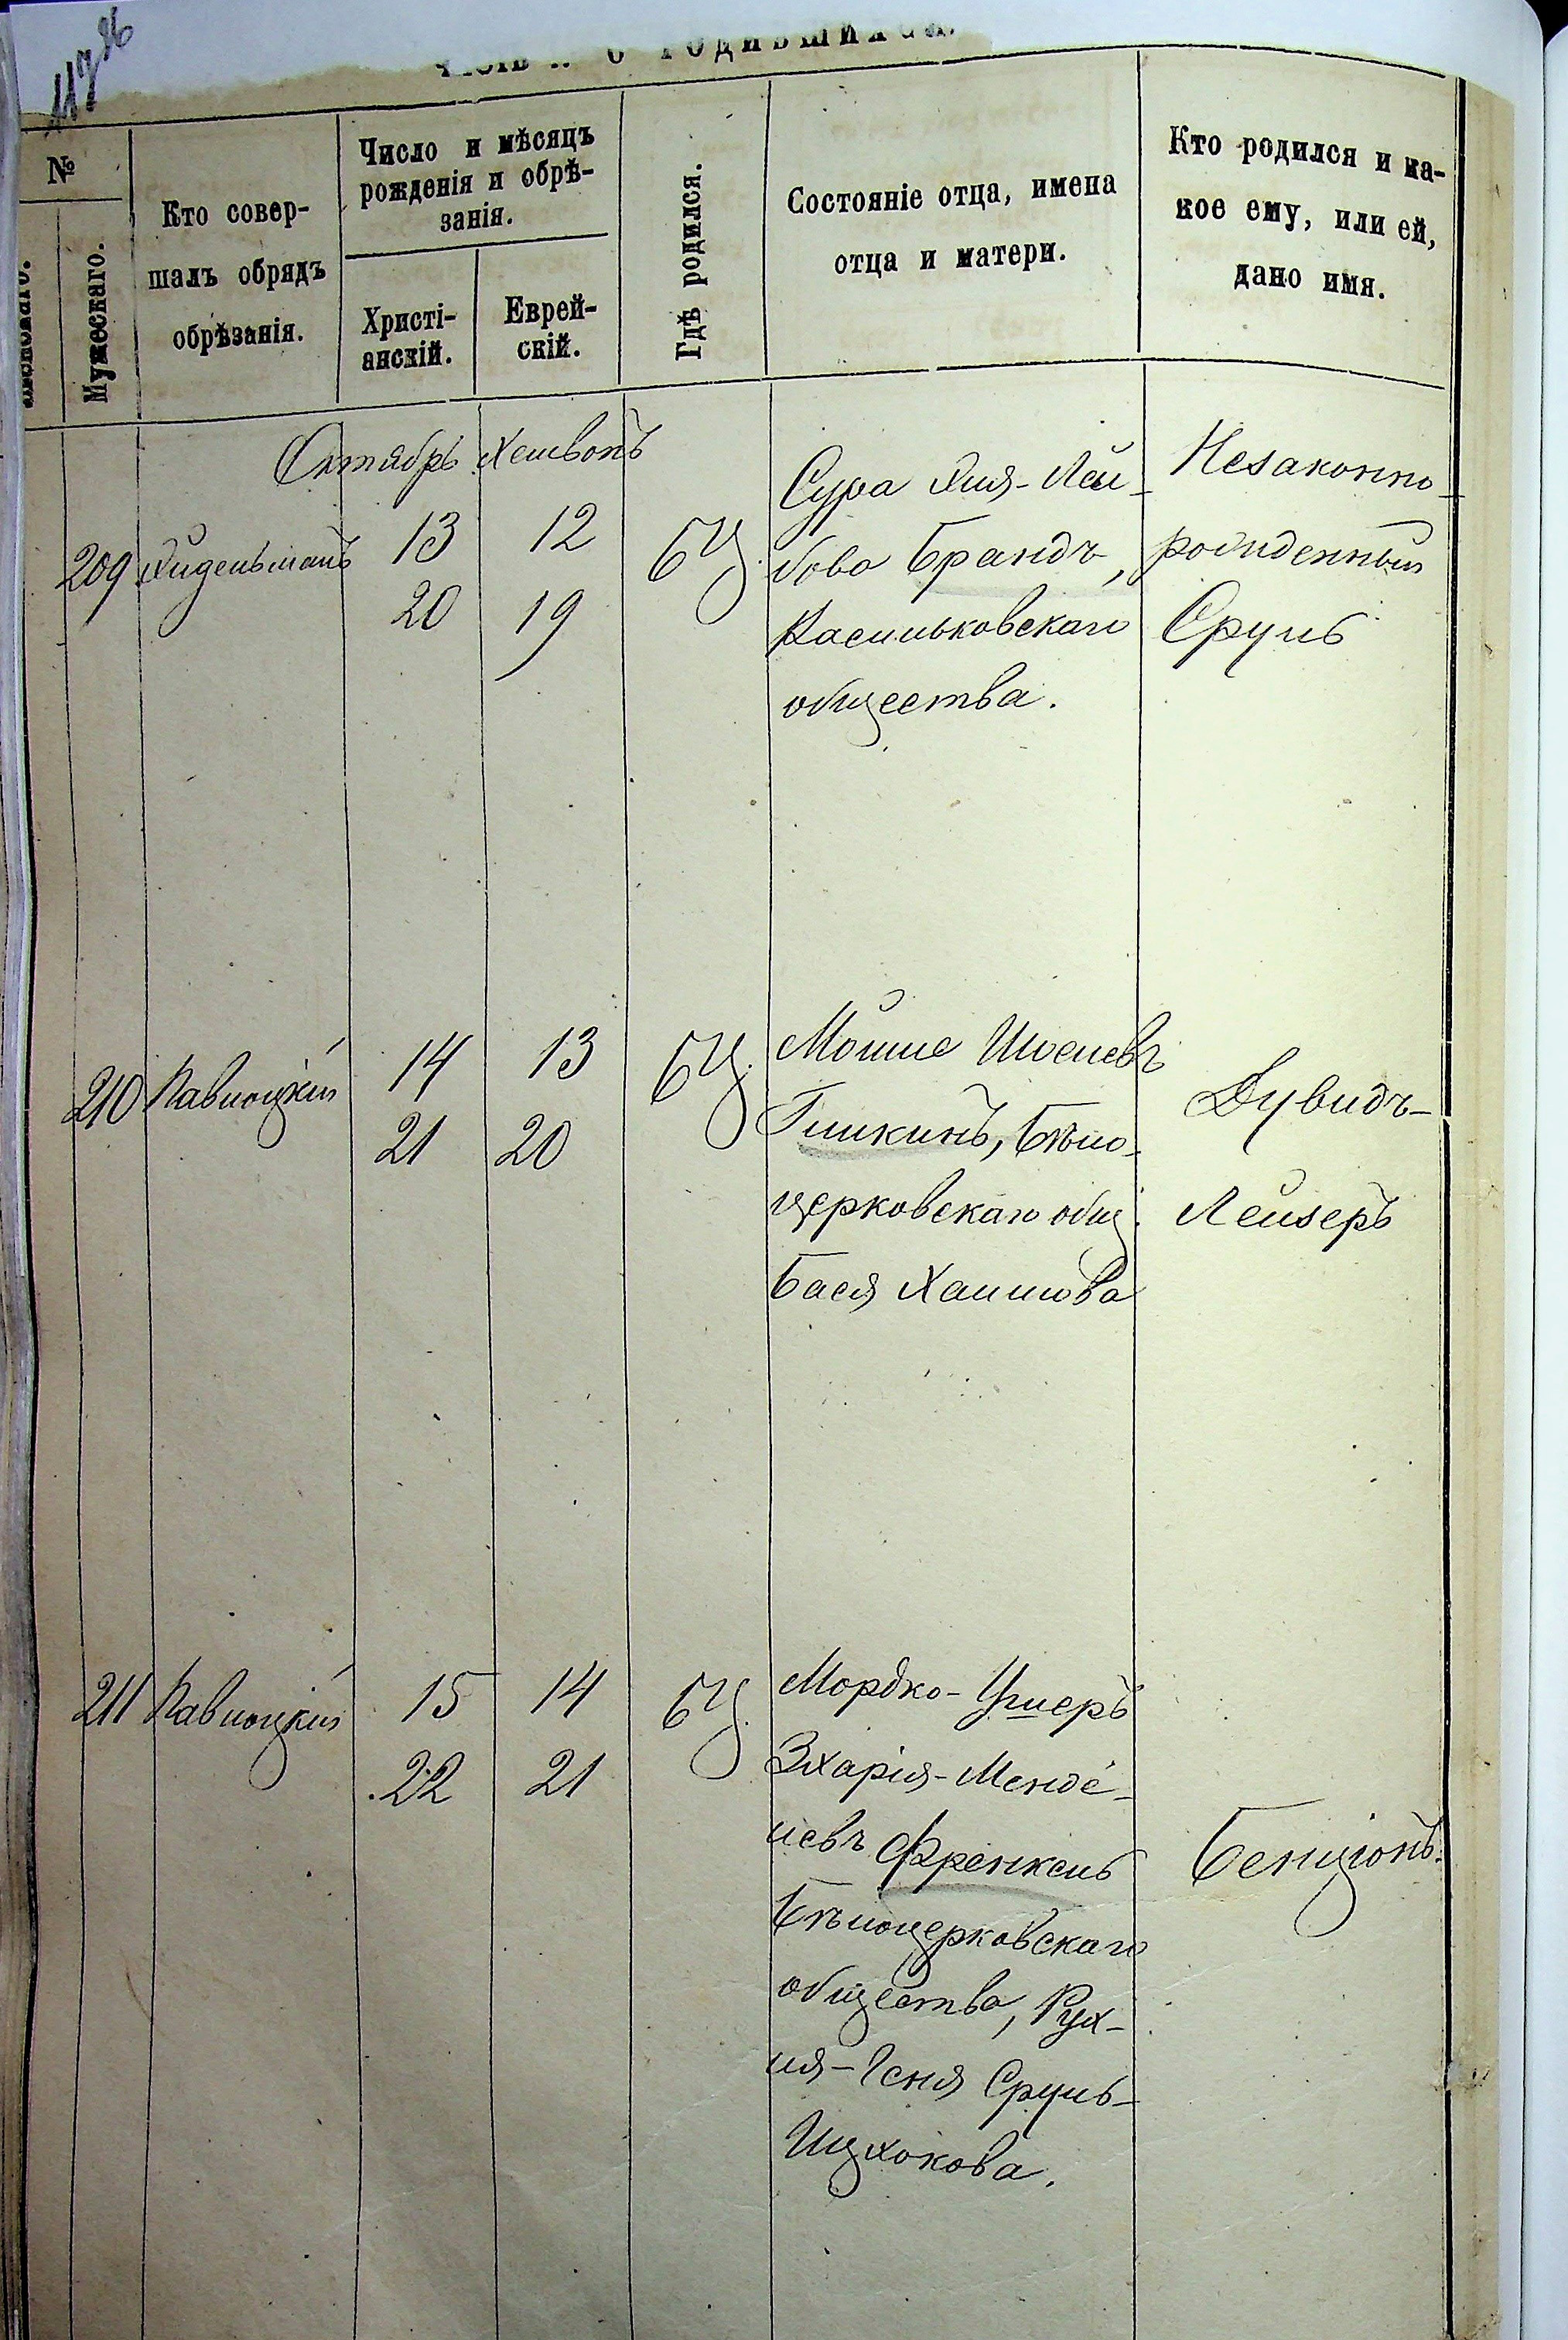 о родившихся.
№
Мужескаго.
Кто совер-
шалъ обрядъ
обрѣзанія.
Число и мѣсяцъ
рожденія и обрѣ-
занія.
Христі-
анскій.
Еврей-
скій.
Гдѣ родился.
Состояніе отца, имена
отца и матери.
Кто родился и ка-
кое ему, или ей,
дано имя.
Октябрь Хешвонъ
209
13 12
20 19
БЦ.
Сура Хия-Лей-
бова Брандъ,
Васильковскаго
общества.
Незаконно-
рожденный
Сруль
210 Павлоцкій
14 13
21 20
БЦ.
Мойше Шоелевъ
Гликинъ, Бѣло-
церковскаго общ.
Бася Хаимова
Дувидъ-
Лейзеръ
211 Павлоцкій
15 14
22 21
БЦ.
Мордко-Ушеръ
Зхарія-Менде-
левъ Френкель
Бѣлоцерковскаго
общества, Рух-
ля-Геня Сруль-
Ицхокова.
Бенціонъ.